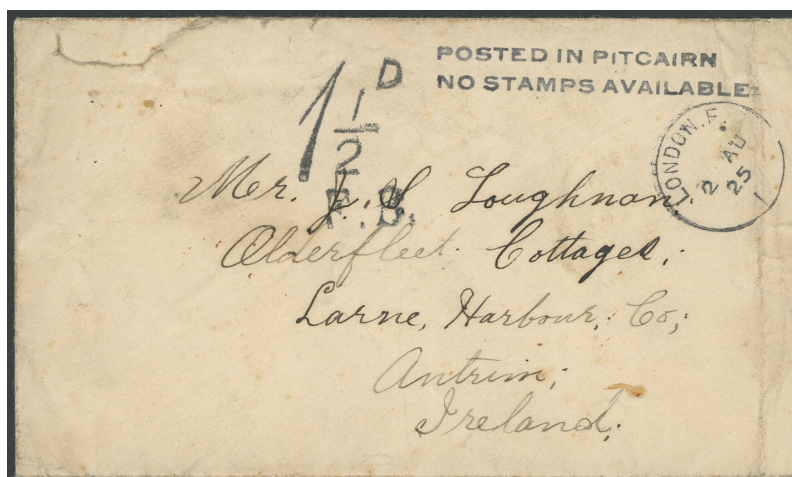 POSTED IN PITCAIRN
NO STAMPS AVAILABLE.
1½D
F.B.
LONDON.F.
2 AU
25
Mr. J. S Loughnan.
Olderfleet Cottages,
Larne, Harbour, Co,
Antrim,
Ireland,